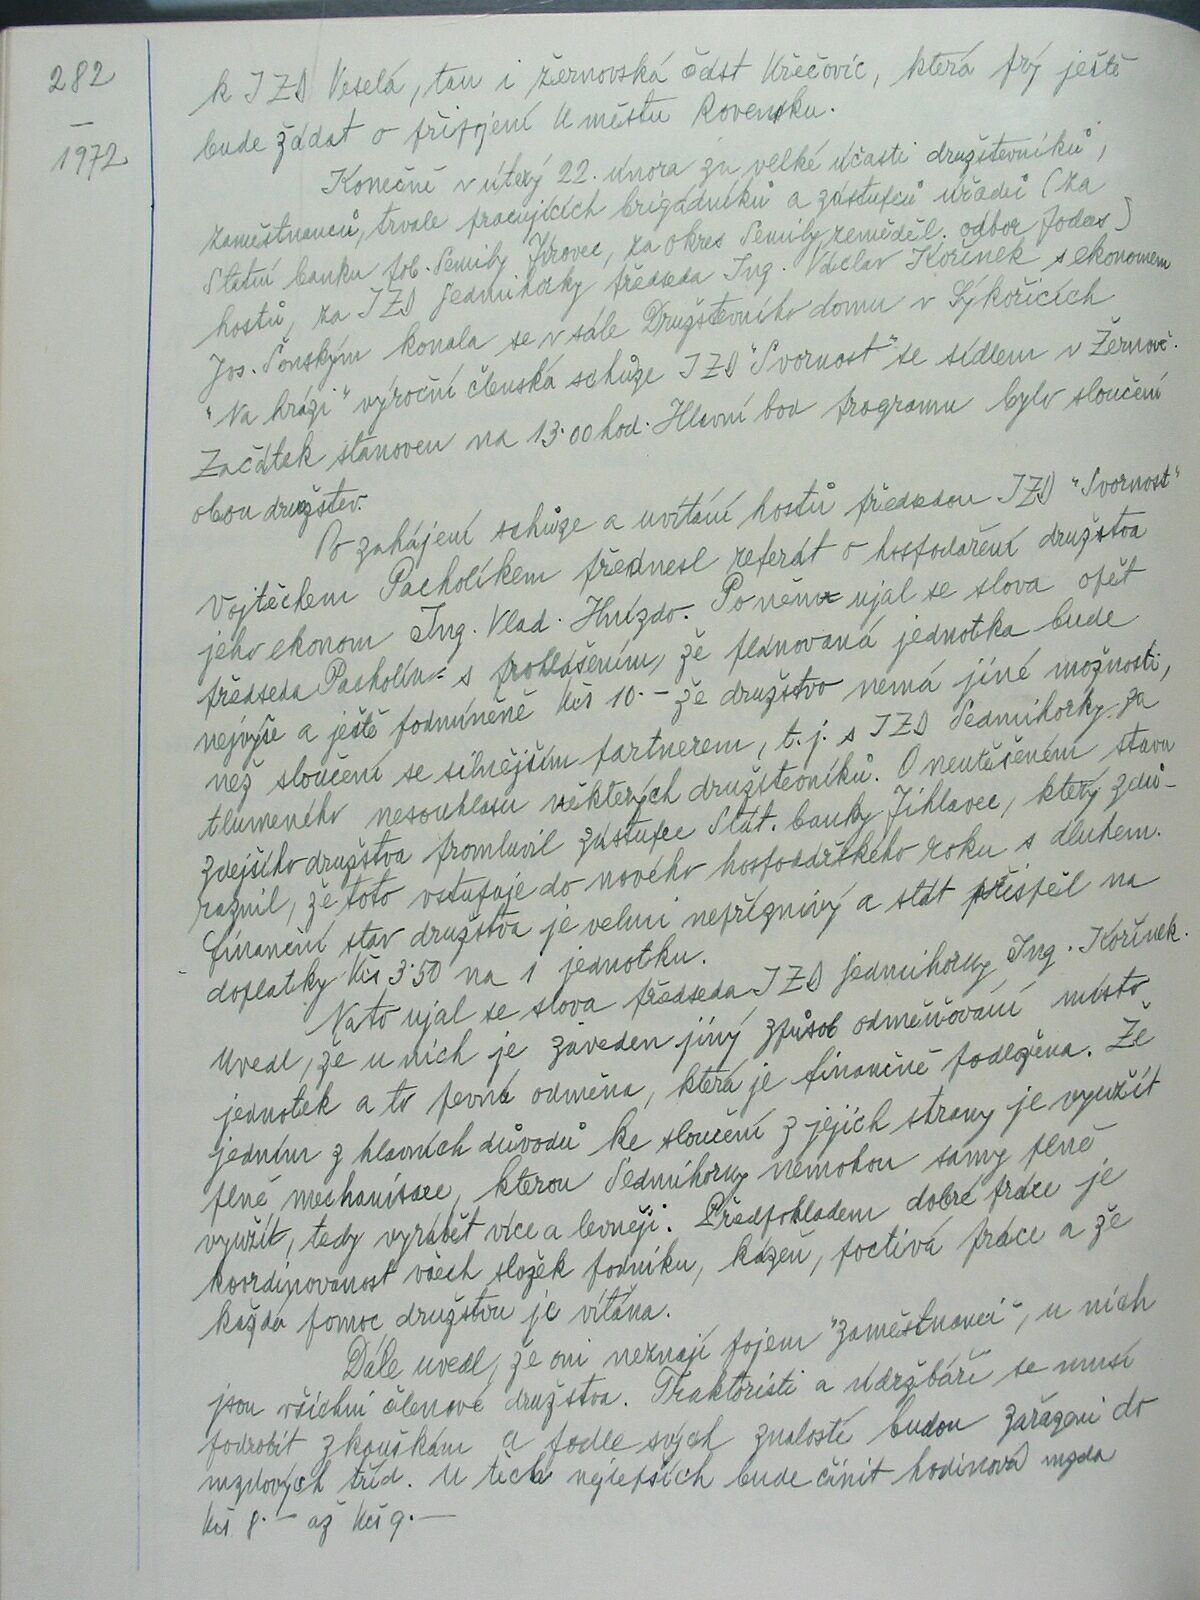 282
—
1972
k JZD Veselá, tan i žernovská část Křečovic, která prý ještě
bude žádat o připojení k městu Rovensku.
Konečně v úterý 22. února za velké účasti družstevníků,
zaměstnanců, trvale pracujících brigádníků a zástupců úřadů (za
Státní banku pob. Semily Jírovec, za okres Semily, zeměděl. odbor
hostů, za JZD Sedmihorky předseda Ing. Václav Kořínek s ekonomem
Jos. Šonským konala se v sále Družstevního domu v Sýkořicích
"Na hrázi" výroční členská schůze JZD "Svornost" se sídlem v Žernově.
Začátek stanoven na 13.00 hod. Hlavní bod programu bylo sloučení
obou družstev.
Po zahájení schůze a uvítání hostů předsedou JZD "Svornost"
Vojtěchem Pacholíkem přednesl referát o hospodaření družstva
jeho ekonom Ing. Vlad. Hnízdo. Po něm ujal se slova opět
předseda Pacholík s prohlášením, že plánovaná jednotka bude
nejvýše a ještě podmíněně Kčs 10.- že družstvo nemá jiné možnosti,
než sloučení se silnějším partnerem, t.j. s JZD Sedmihorky za
tlumeného nesouhlasu některých družstevníků. O neutěšeném stavu
zdejšího družstva promluvil zástupce Stát. banky Jihlavec, který zdů-
raznil, že toto vstupuje do nového hospodářského roku s dluhem.
Finanční stav družstva je velmi nepříznivý a stát přispěl na
doplatky Kčs 3.50 na 1 jednotku.
Nato ujal se slova předseda JZD Sedmihorky Ing. Kořínek.
Uvedl, že u nich je zaveden jiný způsob odměňování místo
jednotek a to pevná odměna, která je finančně podložena. Že
jedním z hlavních důvodů ke sloučení z jejich strany je využít
plné mechanisace, kterou Sedmihorky nemohou samy plně
využít, tedy vyrábět více a levněji. Předpokladem dobré práce je
koordinovanost všech složek podniku, kázeň, poctivá práce a že
každá pomoc družstvu je vítána.
Dále uvedl, že oni neznají pojem "zaměstnanci", u nich
jsou všichni členové družstva. Traktoristi a údržbáři se musí
podrobit zkouškám a podle svých znalostí budou zařazeni do
mzdových tříd. U těch nejlepších bude činit hodinová mzda
Kčs 8.- až Kčs 9.-